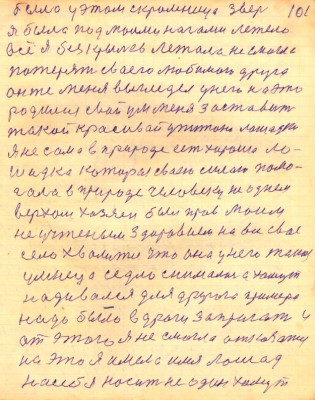 было у этом скромница зверь 101
Я была под моими нагами летело
всё я без крылев летала не смогла
потерять своего любимого друга
он те меня выгледел у него на это
родился свой ум меня заставить
такой красивай
я не сама в природе ест харошие ло-
шадка которая своею силаю помо-
гала в природе человеку не однем
верхом хозяен был прав моим
не ученым здаровием на все свае
село хвалится что она у него такая
умнеца седло снималса хамут
надивался для другога примера
надо было в дроги запрегать и
от этого я не смогла отказатца
на это я имела имя Лошад
на себя носит не один хамут